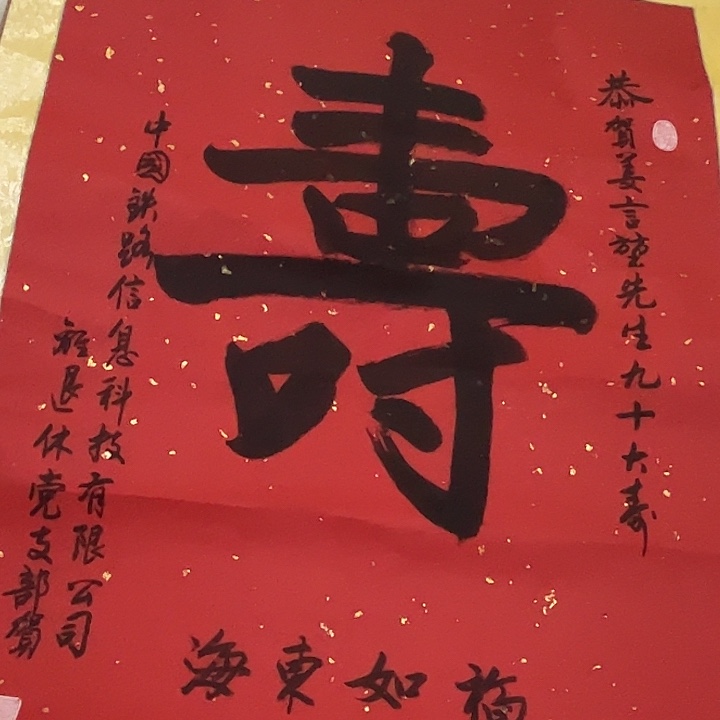 恭賀姜言謹先生九十大寿
壽
福如東海
中國鉄路信息科技有限公司
離退休党支部賀